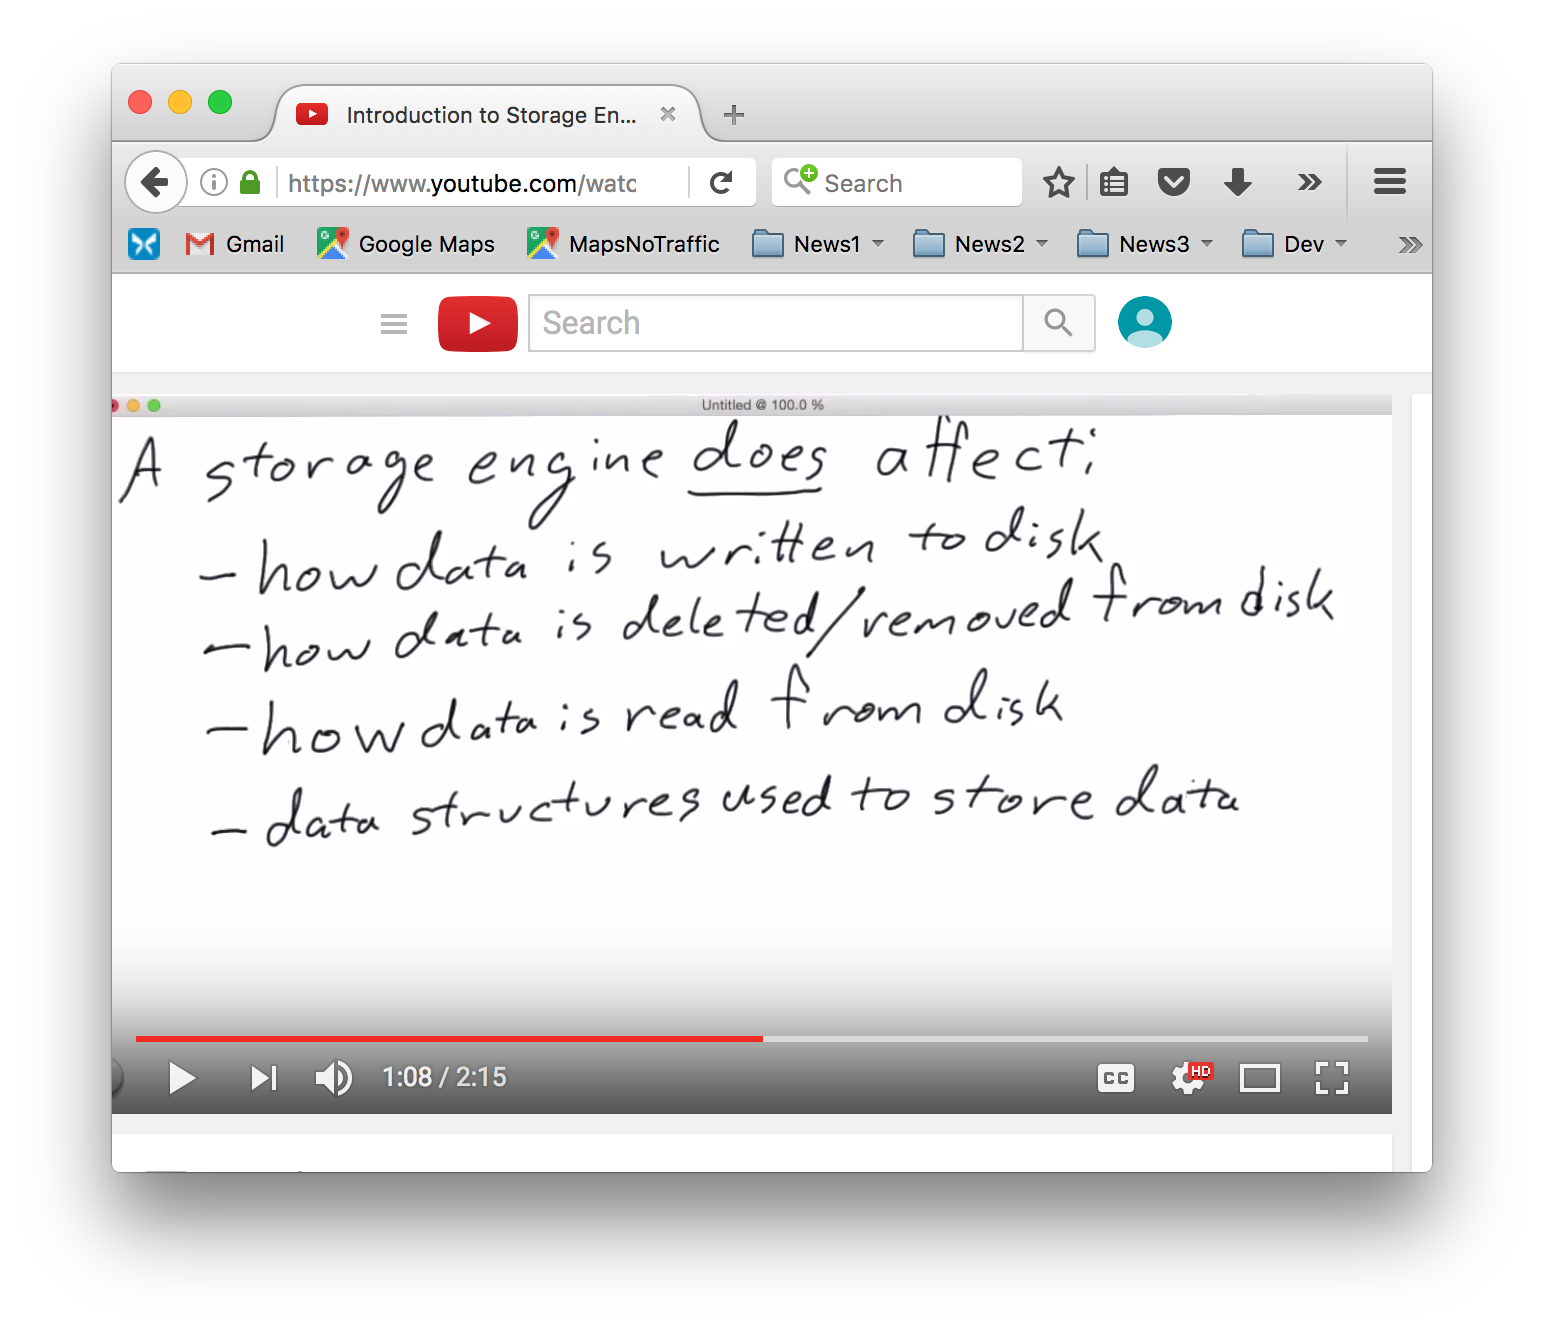 Introduction to Storage En...
https://www.youtube.com/watc
Search
Gmail
Google Maps
MapsNoTraffic
News1
News2
News3
Dev
Search
Untitled @ 100.0 %
A storage engine does affect:
- how data is written to disk
- how data is deleted/removed from disk
- how data is read from disk
- data structures used to store data
1:08 / 2:15
CC
HD